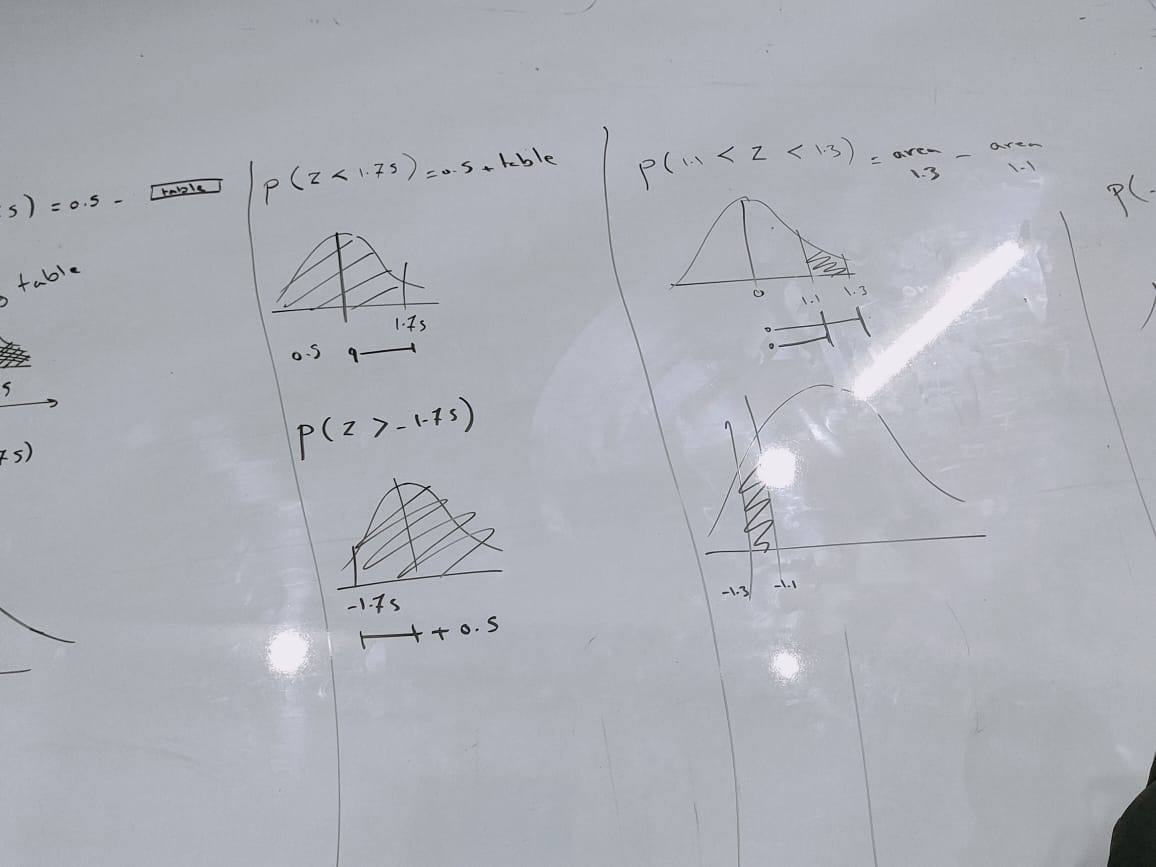 s) = 0.5 - table
table
s
7s)
P(Z < 1.75) = 0.5 + table
1.75
0.5
P(Z > -1.75)
-1.75
+ 0.5
P(1.1 < Z < 1.3) = area 1.3 - area 1.1
0 1.1 1.3
0
0
-1.3 -1.1
P(-